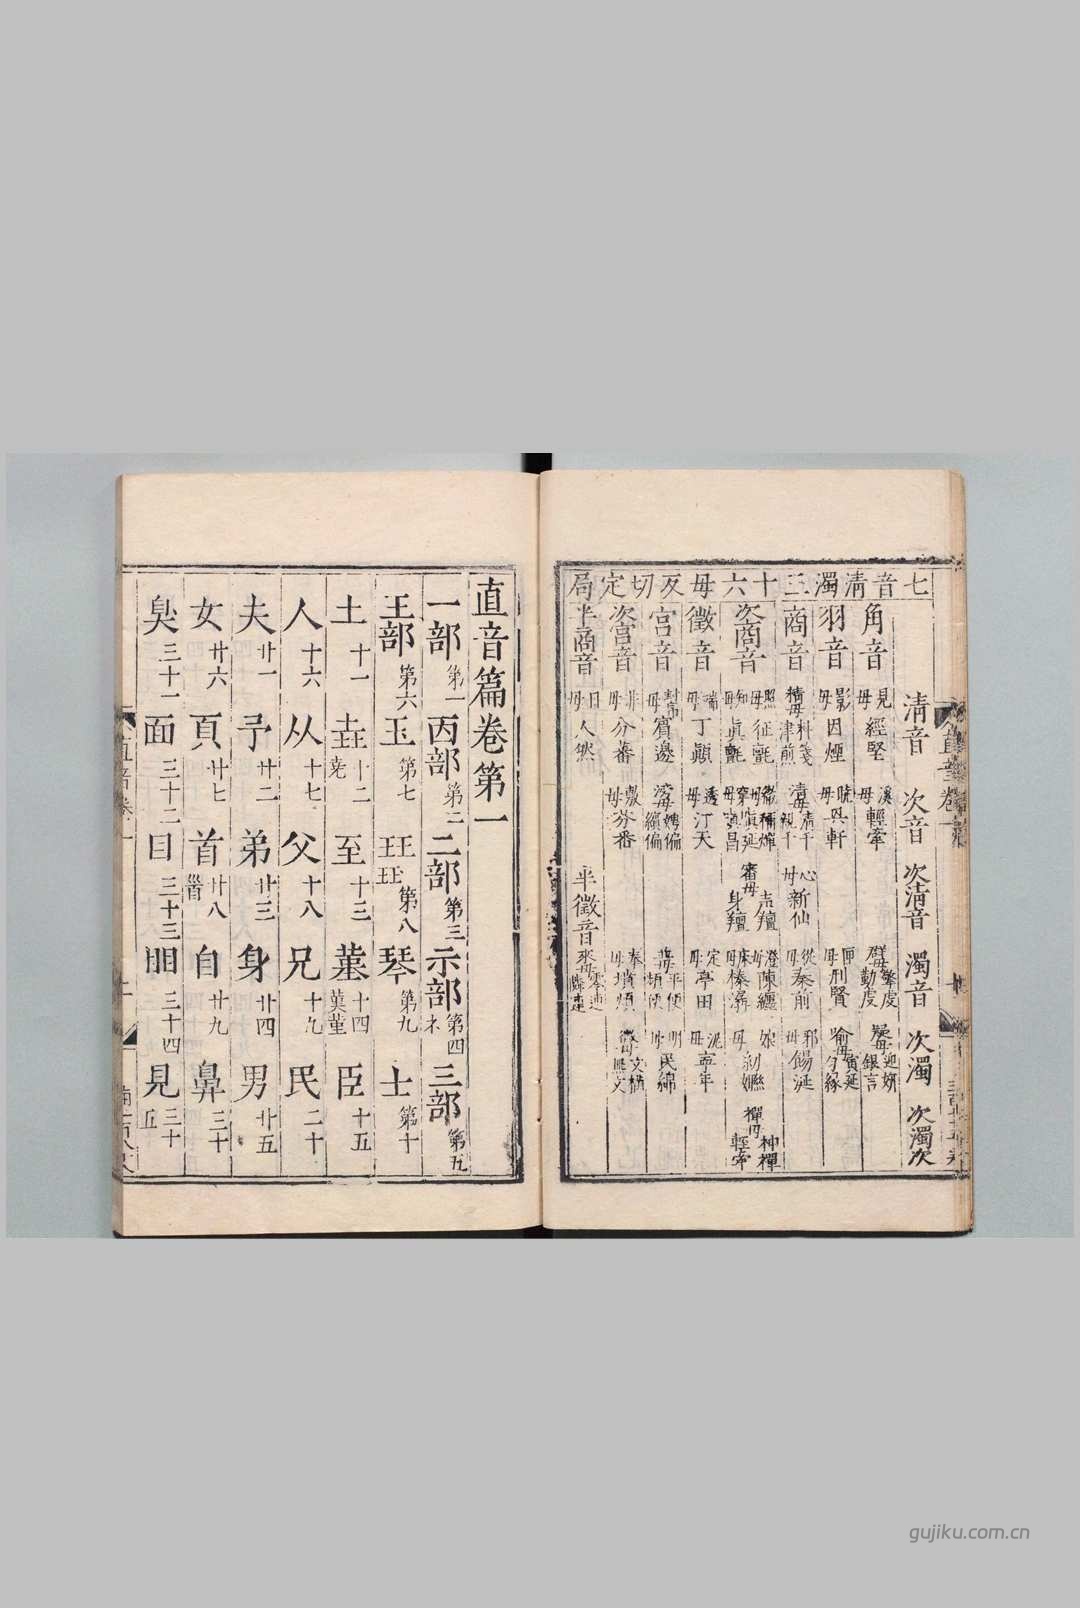 七音清濁三十六母反切定局
清音 次音 次清音 濁音 次濁 次濁次
角音 見母經堅 溪母輕牽 群母勤虔擎虔 疑母銀言迎妍
羽音 影母因煙 曉母興軒 匣母刑賢 喻母勻緣寅延
商音 精母津煎 清母親千清千 心母新仙 從母秦前 邪母餳涎
次商音 知母真氈 照母征氈 審母身羶聲羶 澄母陳纏 娘母紉嫐 禪母
徵音 端母丁顛 透母汀天 定母亭田 泥母寧年
宮音 幫母賓邊 滂母繽偏娉偏 並母平便 明母民綿
次宮音 非母分蕃 敷母芬番 奉母墳煩 微母文樠
半商音 日母人然 半徵音 來母
直音篇卷第一
一部第一 丙部第二 二部第三 示部礻第四 三部第五
王部第六 玉第七 玨第八 琴第九 士第十
土十一 垚尭十二 至十三 墓十四 臣十五
人十六 从十七 父十八 兄十九 民二十
夫廿一 予廿二 弟廿三 身廿四 男廿五
女廿六 頁廿七 首廿八 自廿九 鼻三十
臭三十一 面三十二 目三十三 䀠三十四 見三十五
直音卷一
gujiku.com.cn